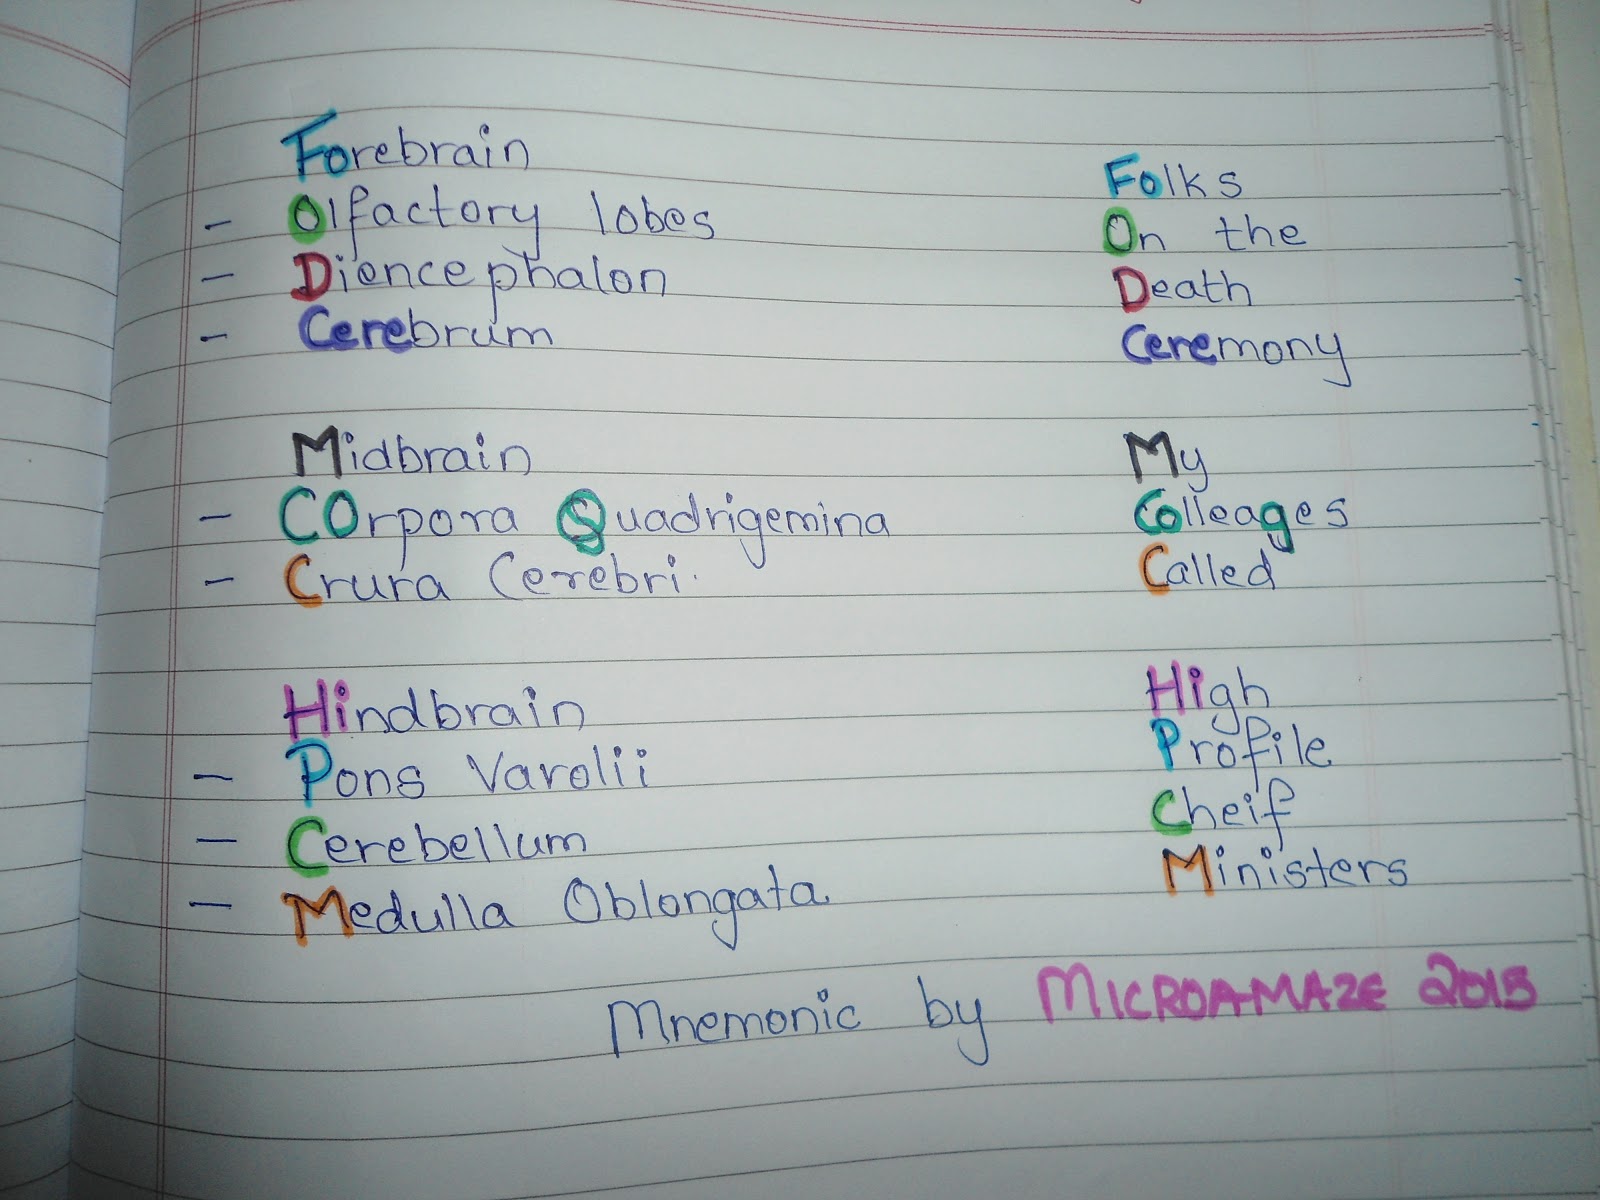 Forebrain
- Olfactory lobes
- Diencephalon
- Cerebrum
Folks
On the
Death
Ceremony
Midbrain
- COrpora Quadrigemina
- Crura Cerebri.
My
Colleages
Called
Hindbrain
- Pons Varolii
- Cerebellum
- Medulla Oblongata
High
Profile
Cheif
Ministers
Mnemonic by MICROAMAZE 2015